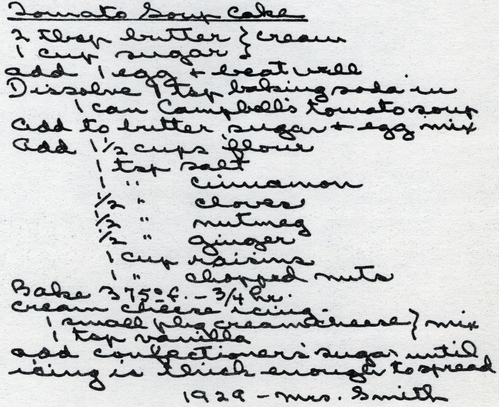 Tomato Soup Cake
2 tbsp butter } cream
1 cup sugar }
add 1 egg + beat well
Dissolve 1 tsp baking soda in
1 can Campbell's tomato soup
add to butter sugar + egg mix
add 1 1/2 cups flour
1 tsp salt
1 " cinnamon
1/2 " cloves
1/2 " nutmeg
1/2 " ginger
1 cup raisins
1 " chopped nuts
Bake 375° f. - 3/4 hr.
cream cheese icing -
1 small pkg cream cheese } mix
1 tsp vanilla
add confectioner's sugar until
icing is thick enough to spread
1929 - Mrs. Smith